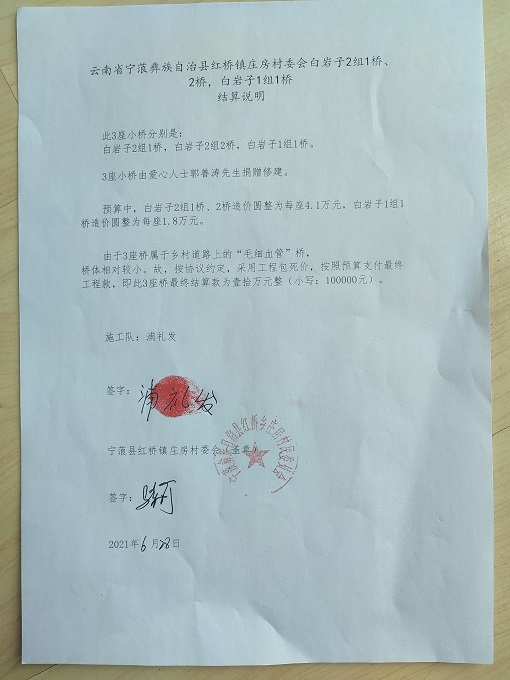 云南省宁蒗彝族自治县红桥镇庄房村委会白岩子2组1桥、
2桥，白岩子1组1桥
结算说明
此3座小桥分别是：
白岩子2组1桥，白岩子2组2桥，白岩子1组1桥。
3座小桥由爱心人士郭善涛先生捐赠修建。
预算中，白岩子2组1桥、2桥造价圆整为每座4.1万元，白岩子1组1
桥造价圆整为每座1.8万元。
由于3座桥属于乡村道路上的“毛细血管”桥，
桥体相对较小。故，按协议约定，采用工程包死价，按照预算支付最终
工程款，即此3座桥最终结算款为壹拾万元整（小写：100000元）。
施工队：浦礼发
签字：浦礼发
宁蒗县红桥镇庄房村委会
红桥乡庄房村民委员会
签字：
2021年6月28日